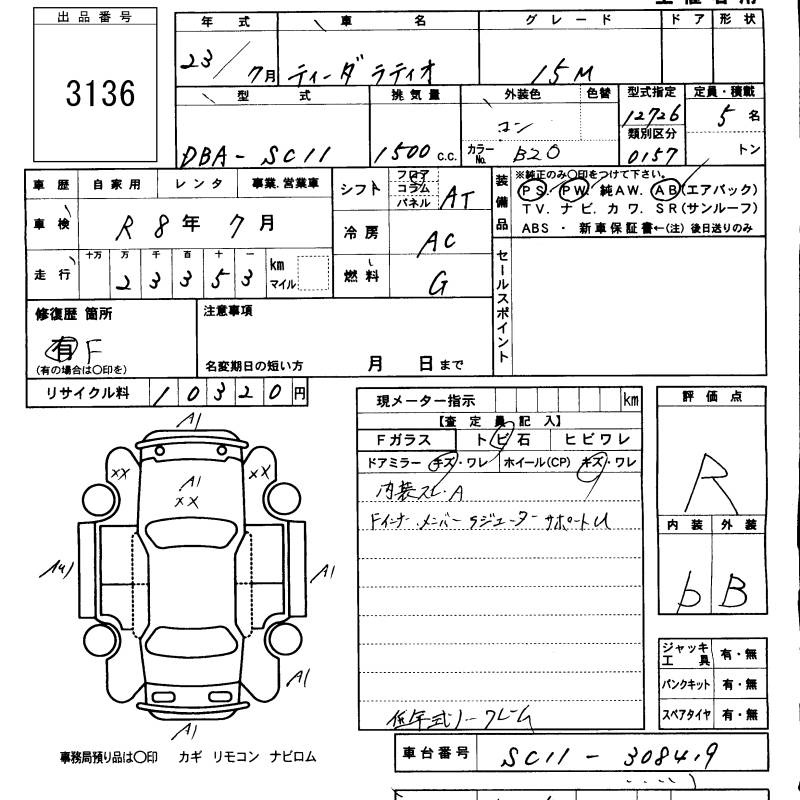 出品番号
3136
年式 車名 グレード ドア 形状
23/7月 ティーダラティオ 15M
型式 排気量 外装色 色替 型式指定 定員・積載
DBA-SC11 1500c.c. コン 12726 5名
カラーNo. B20 類別区分 0157 トン
車歴 自家用 レンタ 事業.営業車
車検 R8年7月
走行 十万 万 千 百 十 一 km マイル
23353
シフト フロア コラム パネル AT
冷房 AC
燃料 G
装備品
※純正のみ〇印をつけて下さい。
PS. PW. 純AW. AB(エアバック)
TV. ナビ. カワ. SR(サンルーフ)
ABS ・ 新車保証書←(注) 後日送りのみ
セールスポイント
修復歴 箇所
有 F
(有の場合は〇印を)
注意事項
名変期日の短い方 月 日まで
リサイクル料 10320円
現メーター指示 km
【査定員記入】
Fガラス トビ石 ヒビワレ
ドアミラー キズ・ワレ ホイール(CP) キズ・ワレ
内装スレ.A
Fインナー.メンバー ラジエーターサポートU
低年式ノークレーム
評価点
R
内装 外装
b B
ジャッキ工具 有・無
パンクキット 有・無
スペアタイヤ 有・無
A1
XX
XX
A1
XX
A1
A1
A1
事務局預り品は〇印 カギ リモコン ナビロム
車台番号 SC11-308419